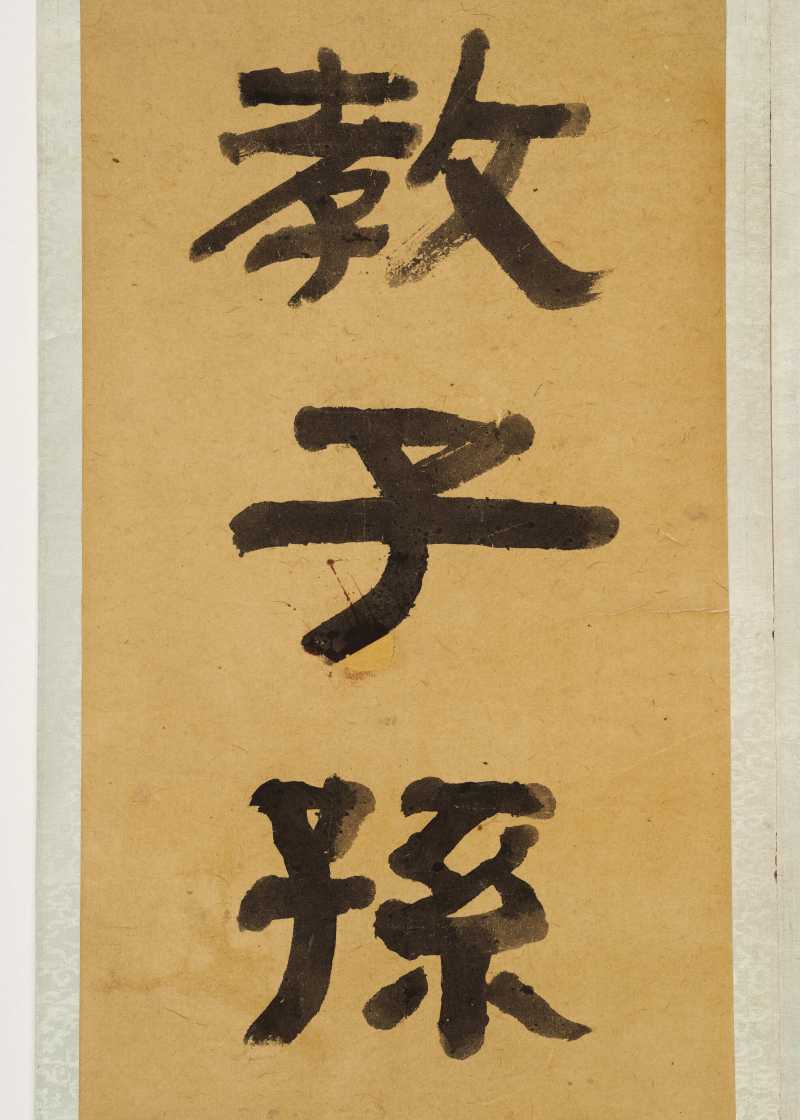 教子孫